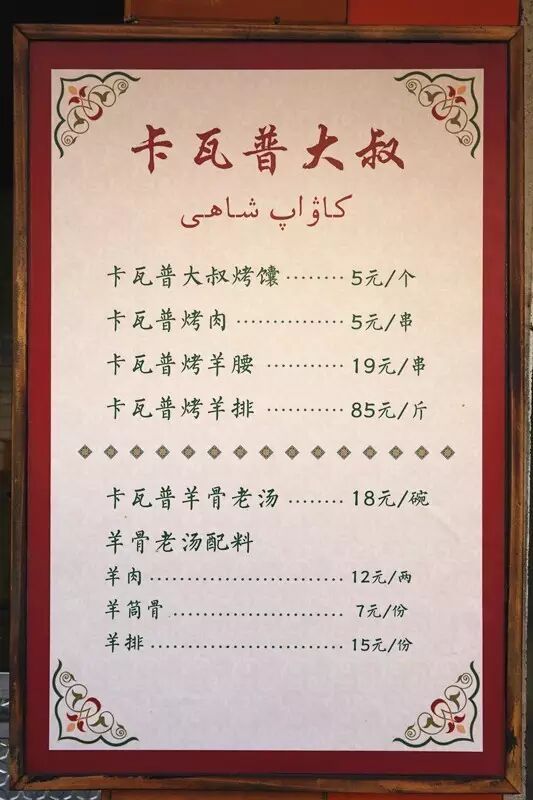 卡瓦普大叔
كاۋاپ شاھى
卡瓦普大叔烤馕 ········ 5元/个
卡瓦普烤肉 ·············· 5元/串
卡瓦普烤羊腰 ·········· 19元/串
卡瓦普烤羊排 ·········· 85元/斤
卡瓦普羊骨老汤 ········ 18元/碗
羊骨老汤配料
羊肉 ···························· 12元/两
羊筒骨 ························· 7元/份
羊排 ···························· 15元/份